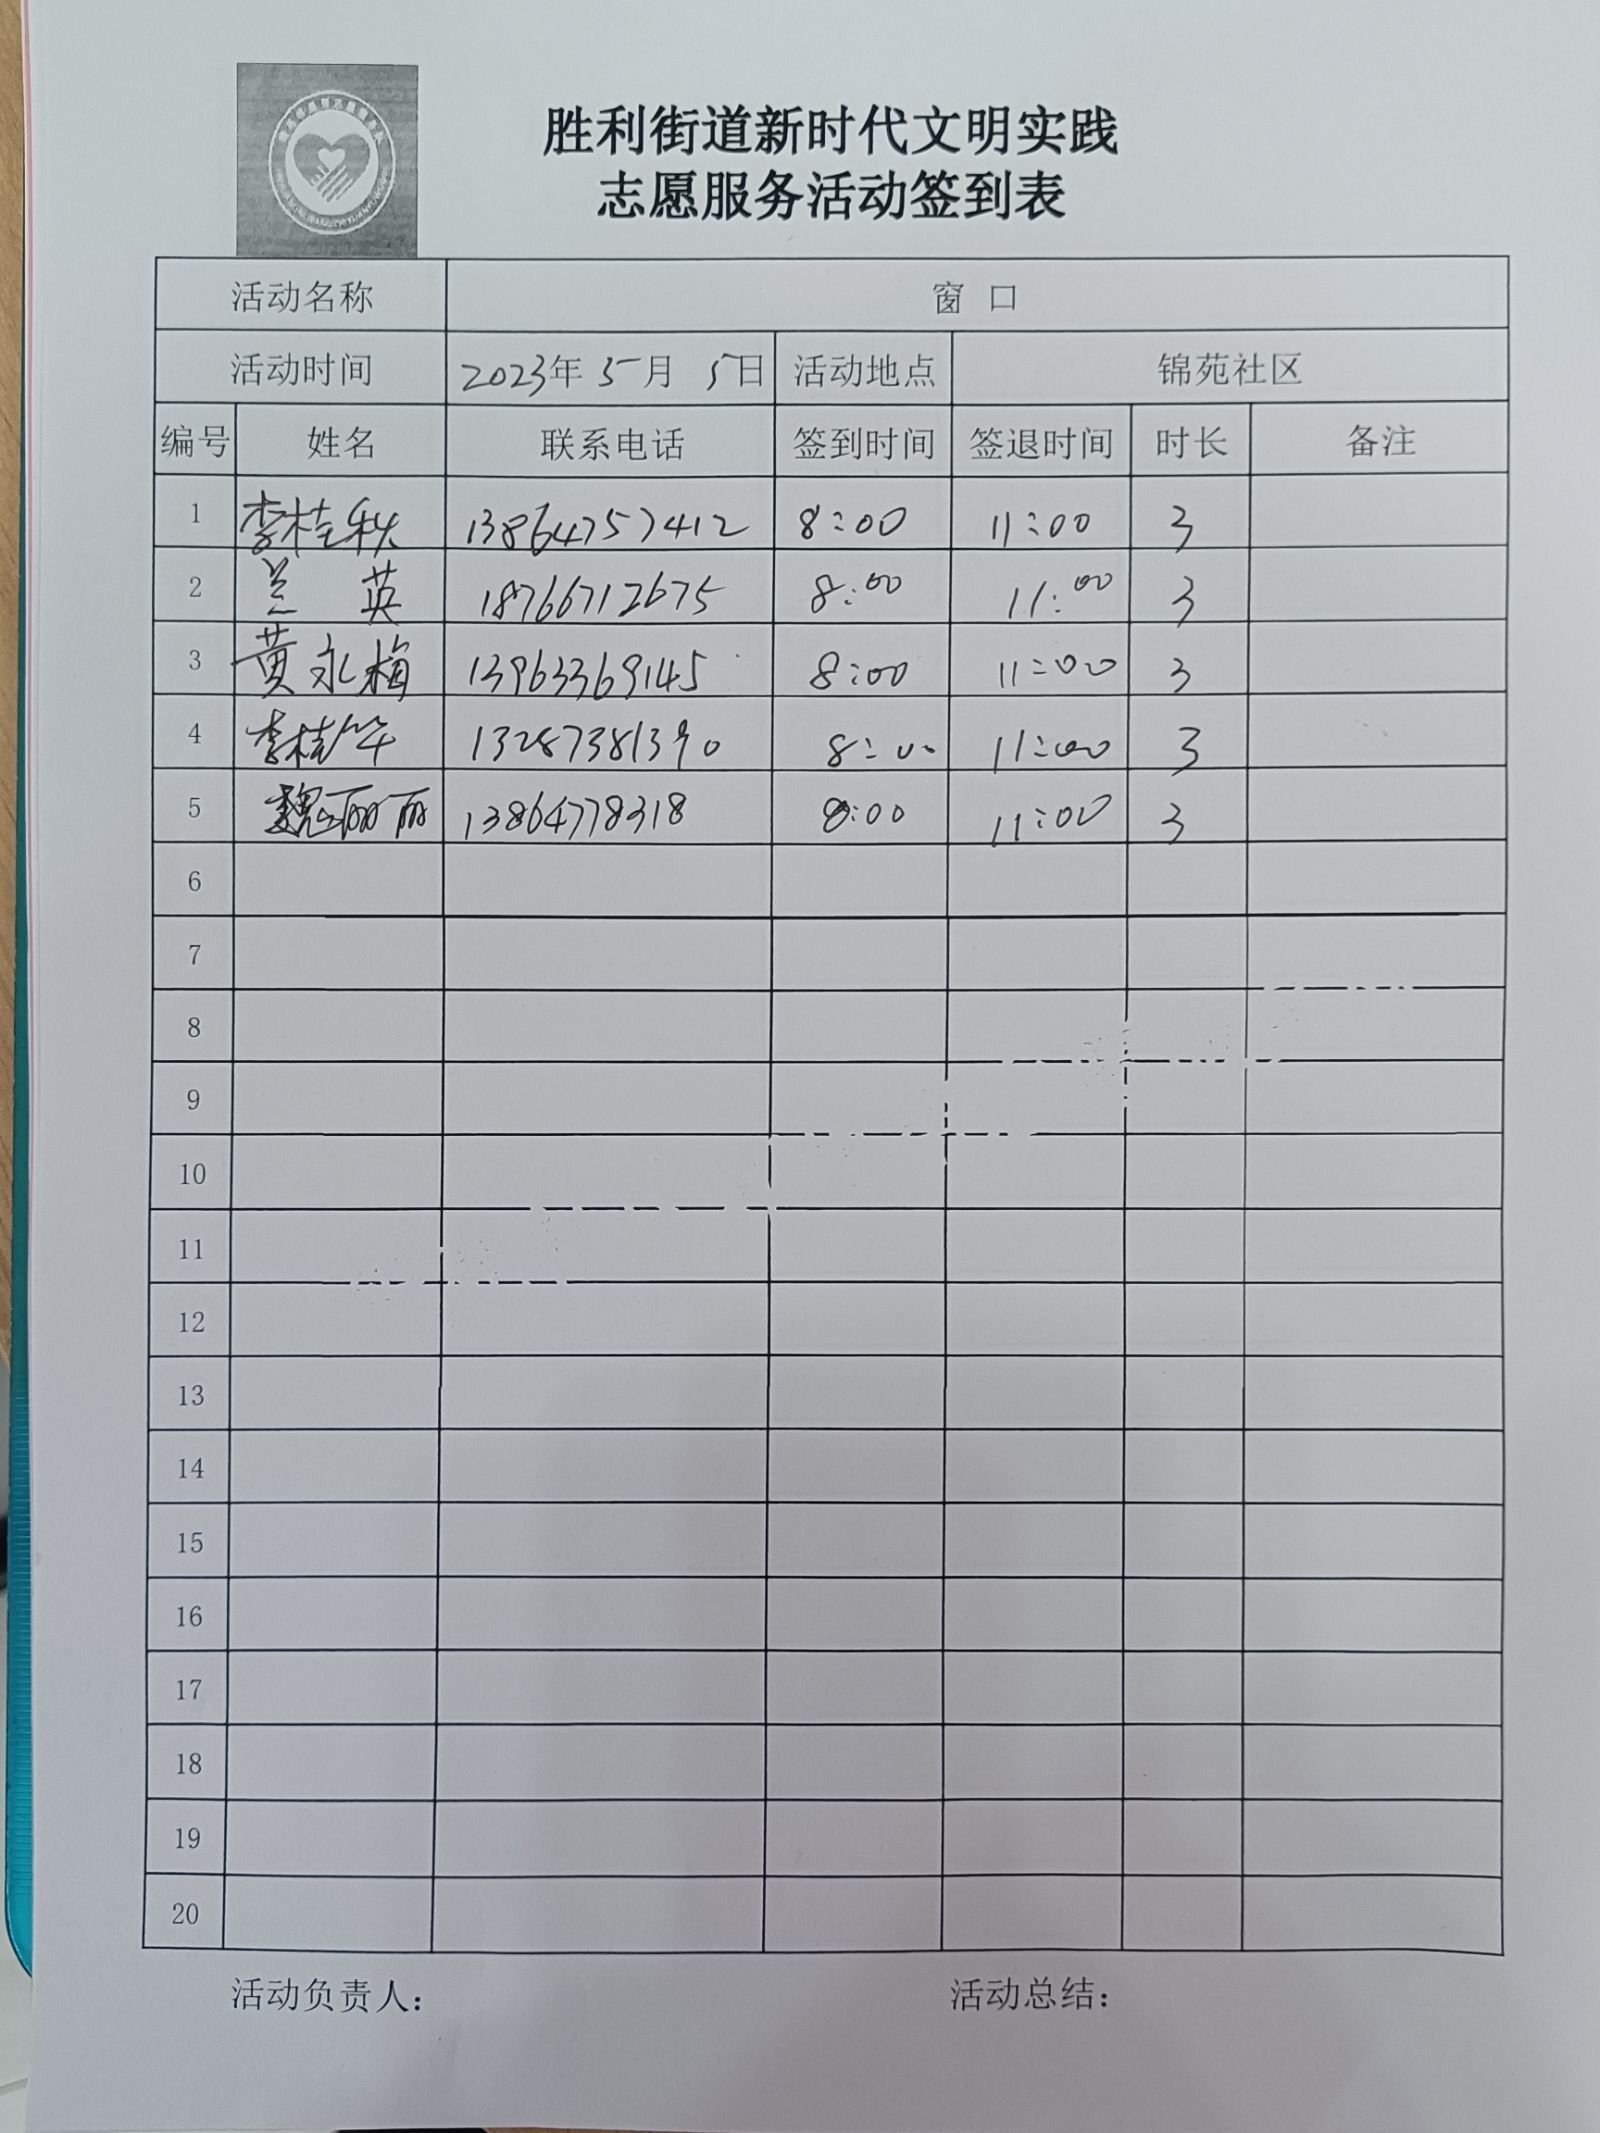 胜利街道新时代文明实践
志愿服务活动签到表
活动名称 窗 口
活动时间 2023年 5月 5日 活动地点 锦苑社区
编号 姓名 联系电话 签到时间 签退时间 时长 备注
1 李桂秋 13864757412 8:00 11:00 3
2 兰 英 18766712675 8:00 11:00 3
3 黄永梅 13963369145 8:00 11:00 3
4 李桂华 13287381390 8:00 11:00 3
5 魏丽丽 13864778318 8:00 11:00 3
6
7
8
9
10
11
12
13
14
15
16
17
18
19
20
活动负责人： 活动总结：